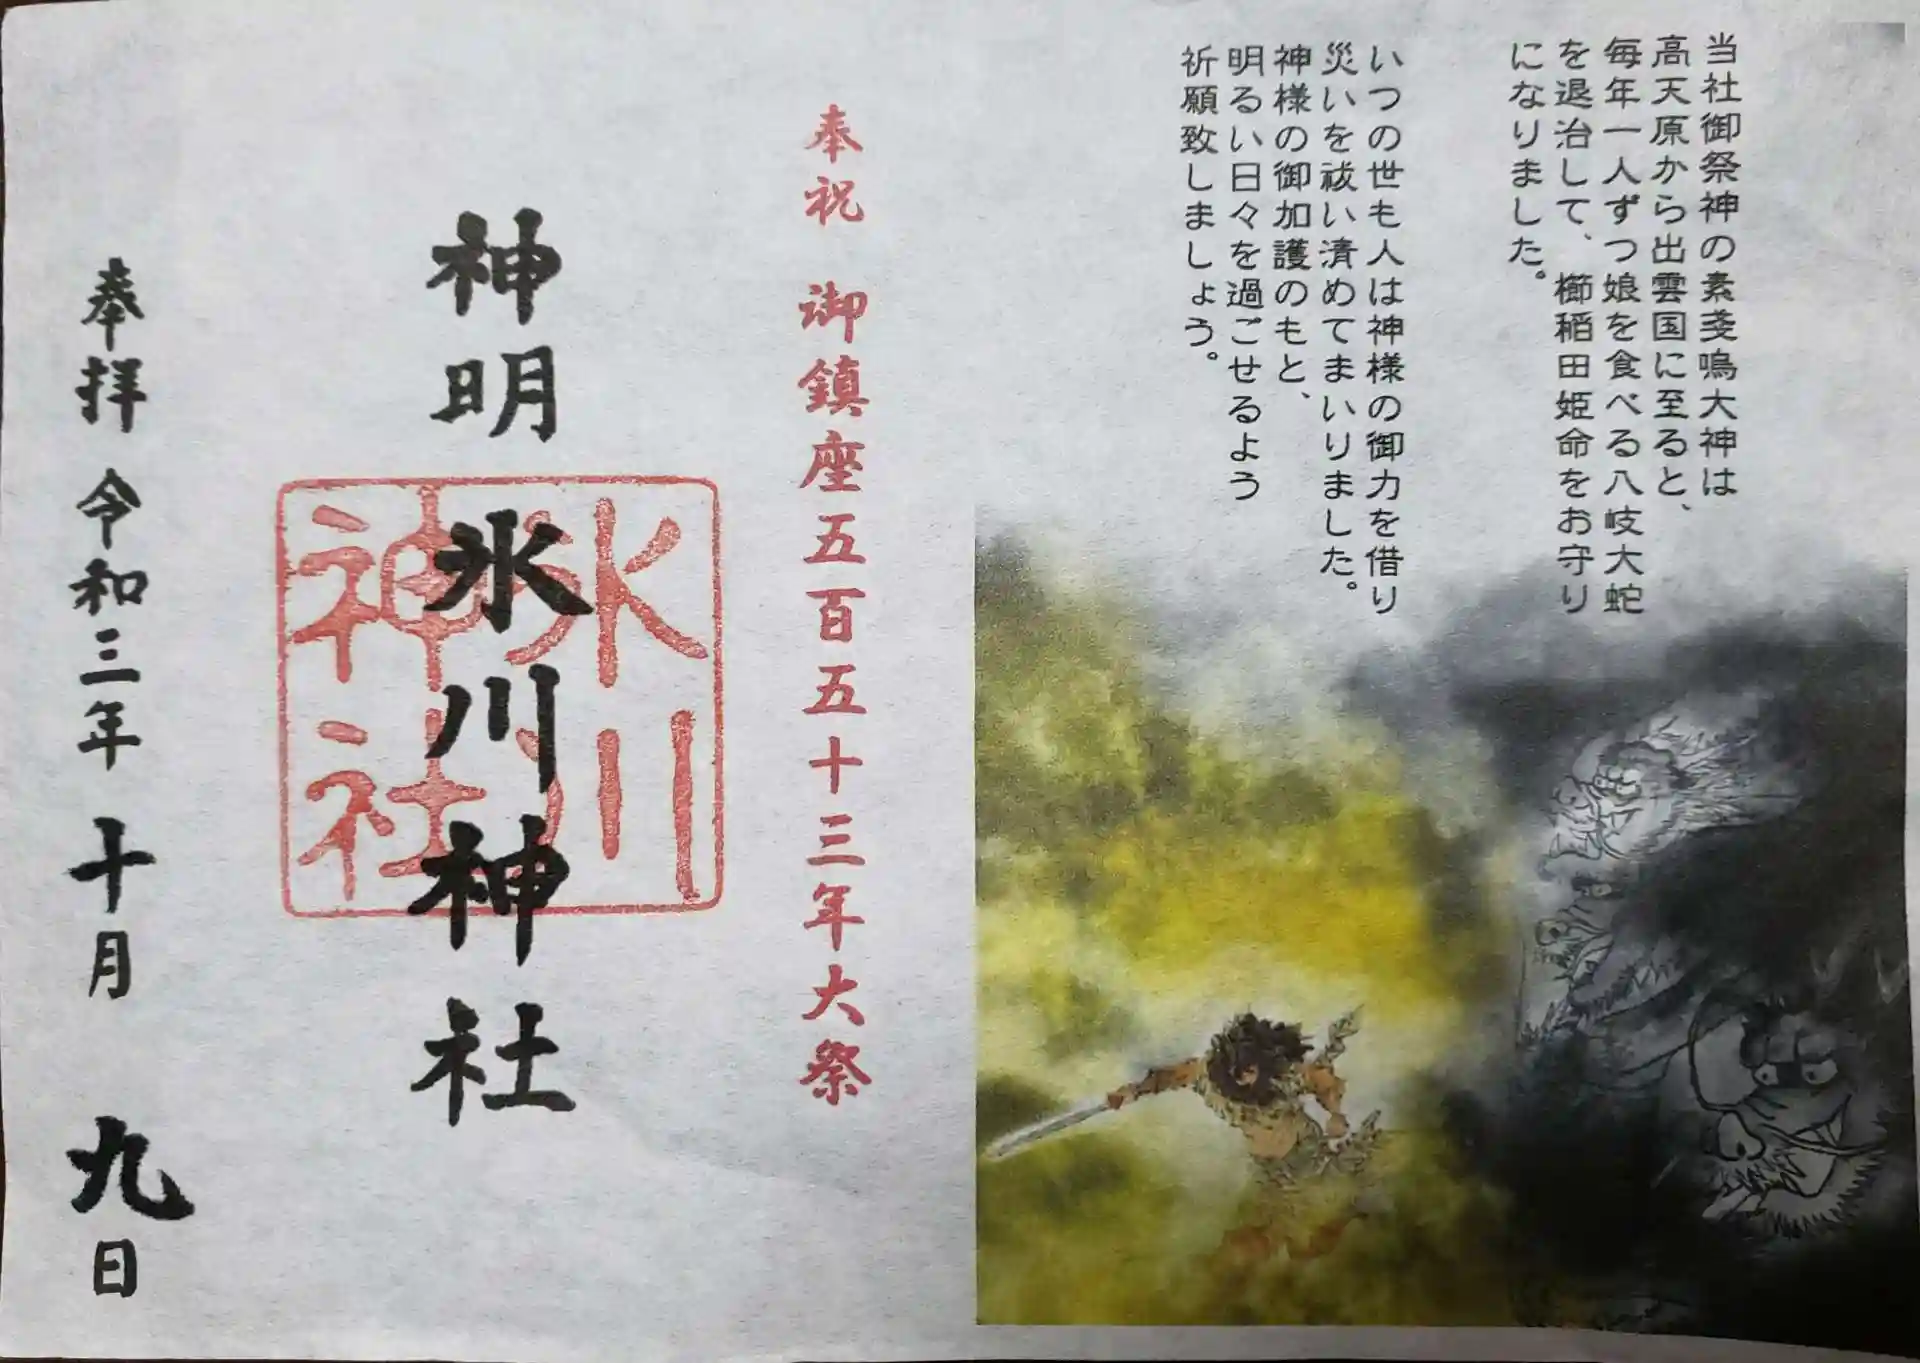 当社御祭神の素戔嗚大神は
高天原から出雲国に至ると、
毎年一人ずつ娘を食べる八岐大蛇
を退治して、櫛稲田姫命をお守り
になりました。
いつの世も人は神様の御力を借り
災いを祓い清めてまいりました。
神様の御加護のもと、
明るい日々を過ごせるよう
祈願致しましょう。
奉祝 御鎮座五百五十三年大祭
神明 氷川神社
氷川
神社
奉拝 令和三年 十月 九日